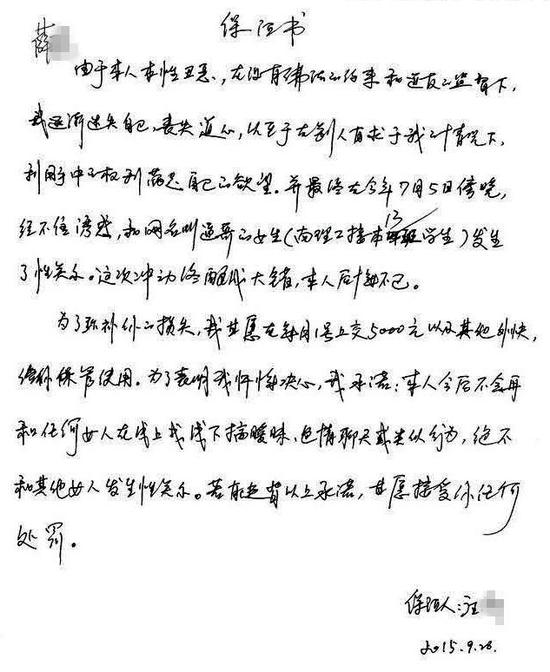 保证书
薛
由于本人本性丑恶，在没有佛法的约束和道友的监督下，
我逐渐迷失自己，丧失道心，以至于在别人有求于我的情况下，
利用手中的权利满足自己的欲望。并最终在今年7月5日傍晚，
经不住诱惑，和网名叫逗哥的女生（南理工接本13学生）发生
了性关系。这次冲动终酿成大错，本人后悔不已。
为了弥补你的损失，我甘愿在每月1号上交5000元以及其他外快，
给你保管使用。为了表明我忏悔决心，我承诺：本人今后不会再
和任何女人在线上或线下搞暧昧、色情聊天或类似行为，绝不
和其他女人发生性关系。若有违背以上承诺，甘愿接受你任何
处罚。
保证人：汪
2015.9.28.